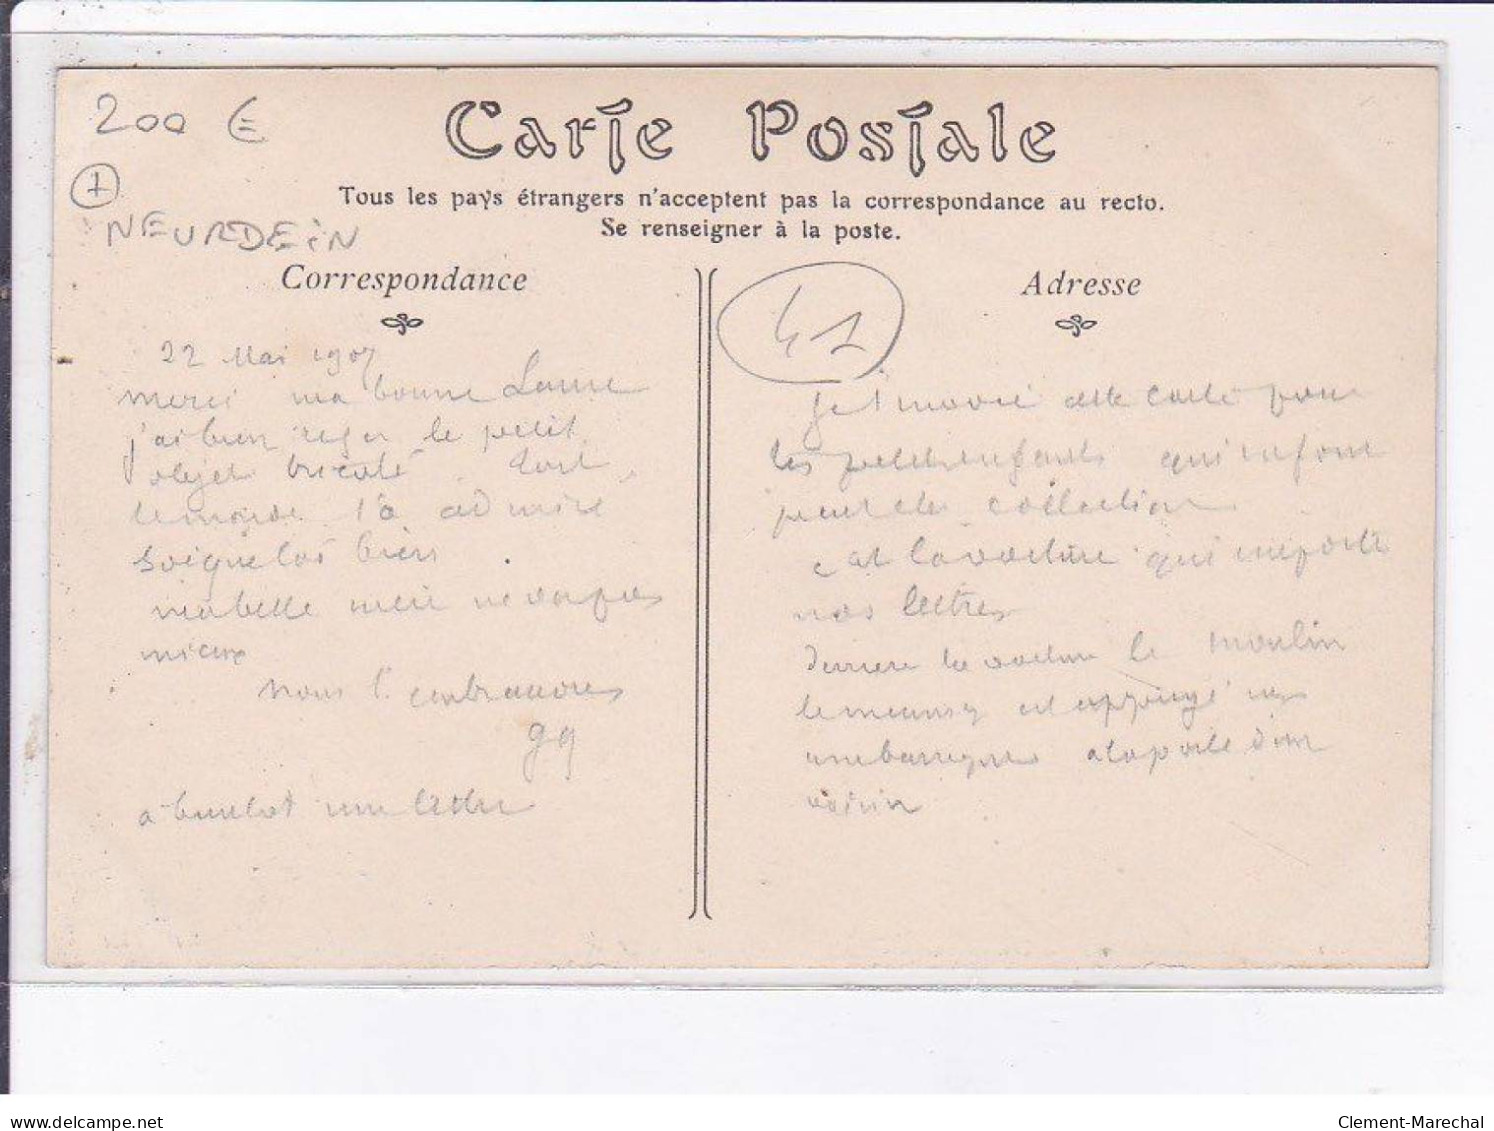 200 €
Carte Postale
1
Tous les pays étrangers n'acceptent pas la correspondance au recto.
NEURDEIN
Se renseigner à la poste.
Correspondance
Adresse
41
22 Mai 1907
merci ma bonne
j'ai bien le petit
objet tout
le monde l'a admiré
bien
ma belle
mieux
nous t'embrassons
gg
a bientot une lettre
Je t'envoie cette carte pour
les petits enfants qui
collection
c'est la voiture qui emporte
nos lettres
derriere la voiture le moulin
le meunier est appuyé
une barrique a la porte d'un
voisin
delcampe.net
Clement-Marechal